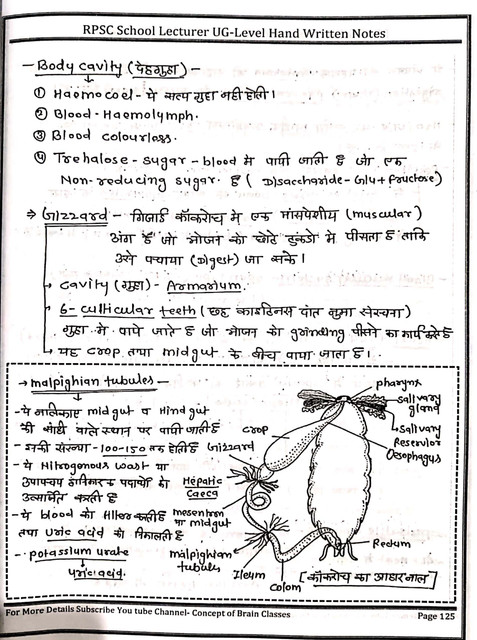 RPSC School Lecturer UG-Level Hand Written Notes
- Body cavity (देहगुहा) -
① Haemocoel - ये सत्य गुहा नही होती।
② Blood - Haemolymph.
③ Blood colourless.
④ Trehalose - sugar - blood मे पायी जाती है जो एक
Non-reducing sugar है (Disaccharide - Glu + Fructose)
⇒ Gizzard - गिजार्ड कॉकरोच मे एक मांसपेशीय (muscular)
अंग है जो भोजन को छोटे टुकडो मे पीसता है ताकि
उसे पचाया (Digest) जा सके।
→ Cavity (गुहा) - Armarium.
→ 6 - cuticular teeth (छह क्यूटिनस दांत नुमा संरचना)
गुहा मे पाये जाते है जो भोजन को grinding पीसने का कार्य करते है
→ यह crop तथा midgut के बीच पाया जाता है।
→ malpighian tubules -
- ये नलिकाए midgut व Hindgut
की संधी वाले स्थान पर पायी जाती है
- इनकी संख्या - 100-150 तक होती है
- ये Nitrogenous wast या
उपापचय हानिकारक पदार्थो को
उत्सर्जित करती है
- ये blood को filter करती है
तथा Uric acid को निकालती है
- potassium urate
Uric acid.
pharynx
salivary
gland
Salivary
Reservior
Oesophagus
Crop
Gizzard
Hepatic
Caeca
mesentron
या midgut
malpighian
tubules
Ileum
Colom
Rectum
[कॉकरोच का आहारनाल]
For More Details Subscribe You tube Channel- Concept of Brain Classes
Page 125